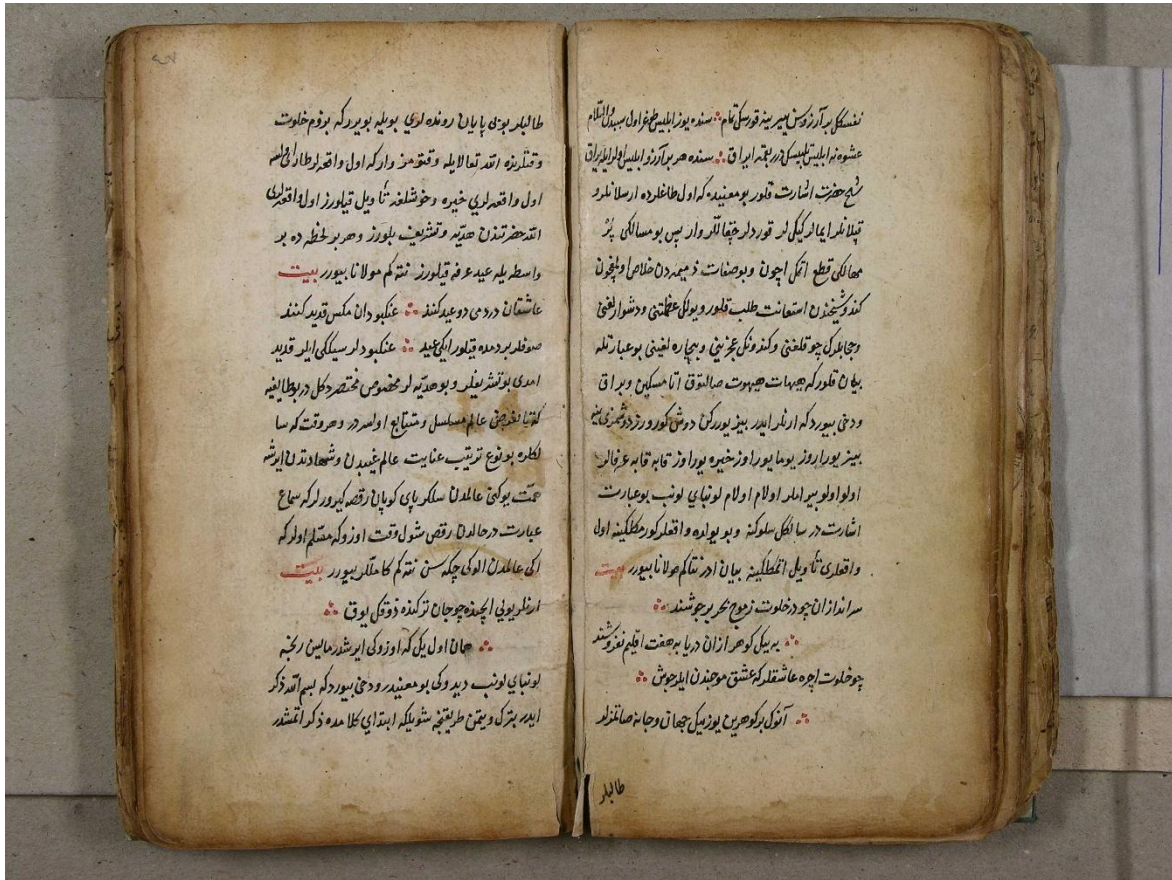 نفسكل بر آرزوسن بیر بیڭه قورسكی تمام سنده یوز ابلیس طوغر اول سببدن والسلام
عشوهٔ ابلیس تلبیسكدر بتمه ایراق سنده هر بر آرزو ابلیس اولر ایله یراق
شیخ حضرت اشارت قلور بو معنیده كه اول طاغلرده ارسلانلر و
قپلانلر ایمالر كیكی لر قوردلر چقاللر وار پس بو مسالكی پر
مهالكی قطع اتمك اچون و بو صفات ذمیمه دن خلاص اولمغچون
كندو شیخندن استعانت طلب قلور و یولكی عظمتنی و دشوارلغنی
وجبالرك چوقلغنی و كندونكل عجزینی و بیچاره لغینی بو عبارتله
بیان قلور كه هیهات هیهوت صالتوق اتا مسكین و براق
و دخی بیوردكه ارنلر ایدر بیز یورركن دوش كورورز دوشمزی ینه
بیز یوراروز یوما یوراوز خیره یوراوز قابه قابه عرفالر
اولو اولو بیراملر اولام اولام لونبای لونب بو عبارت
اشارت در سالكل سلوكنه و بو یولده واقعلر كورمكلكینه اول
واقعلری تأویل اتمكلكینه بیان ادر نتاكم مولانا بیورر بیت
سراندازان چو در خلوت ز موج بحر بر جوشند
به بیكل كوهر از ان دریا به هفت اقلیم نفروشند
چو خلوت اچره عاشقلر كه عشق موجندن ایلر جوش
آنوك بر كوهرین یوز بیكل جهان و جانه صاتمزلر
طالبلر
طالبلر یولی پایان رونده لری بویله بویرر كه بزوم خلوت
وقتلرنده الله تعالا یله وقتومز وار كه اول واقعه لر طاری اولسه
اول واقعه لری خیره و خوشلغه تأویل قیلورز اول واقعه لری
الله حضرتندن هدیه و تشریف بلورز و هر بر لحظه ده بر
واسطه یله عید عرفه قیلورز نتكم مولانا بیورر بیت
عاشقان در دمی دو عید كنند عنكبودان مكس قدید كنند
صوفلر بر دمده قیلور ایكی عید عنكبودلر سیككی ایلر قدید
امدی بو تشریفلر و بو هدیه لر مخصوص مختصر دكل در بو طایفیه
كه تا انقرض عالم مسلسل و متتابع اولسه در و هر وقت كه سا
لكلره بو نوع ترتیب عنایت عالم غیبدن و شهادتدن ایرشه
همت یوكنی عالمدن سلكر پای كوپان رقصه كیرورلر كه سماع
عبارت در حالدن رقص شول وقت اوزوكه مسلم اولر كه
اكی عالمدن الوكی چكه سن نتكم كاملر بیورر بیت
ارنلر یولی ایچنده چو جان تركنده ذوقكل یوق
همان اول یك كه اوزوكی ایرشدر مایسن رنجه
لونبای لونب دیدوكی بو معنیدر و دخی بیوردكه بسم الله ذكر
ایدر بترك و یمن طریقنجه شویلكه ابتدای كلامده ذكر اتمشدر